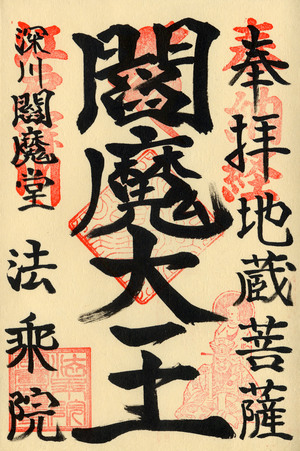 奉拝地蔵菩薩
閻魔大王
深川閻魔堂
法乗院